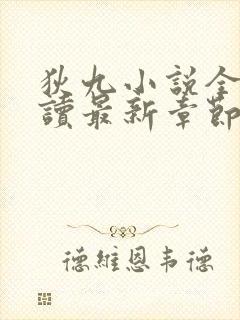 狄九小説全
讀最新章節
德維恩韦德